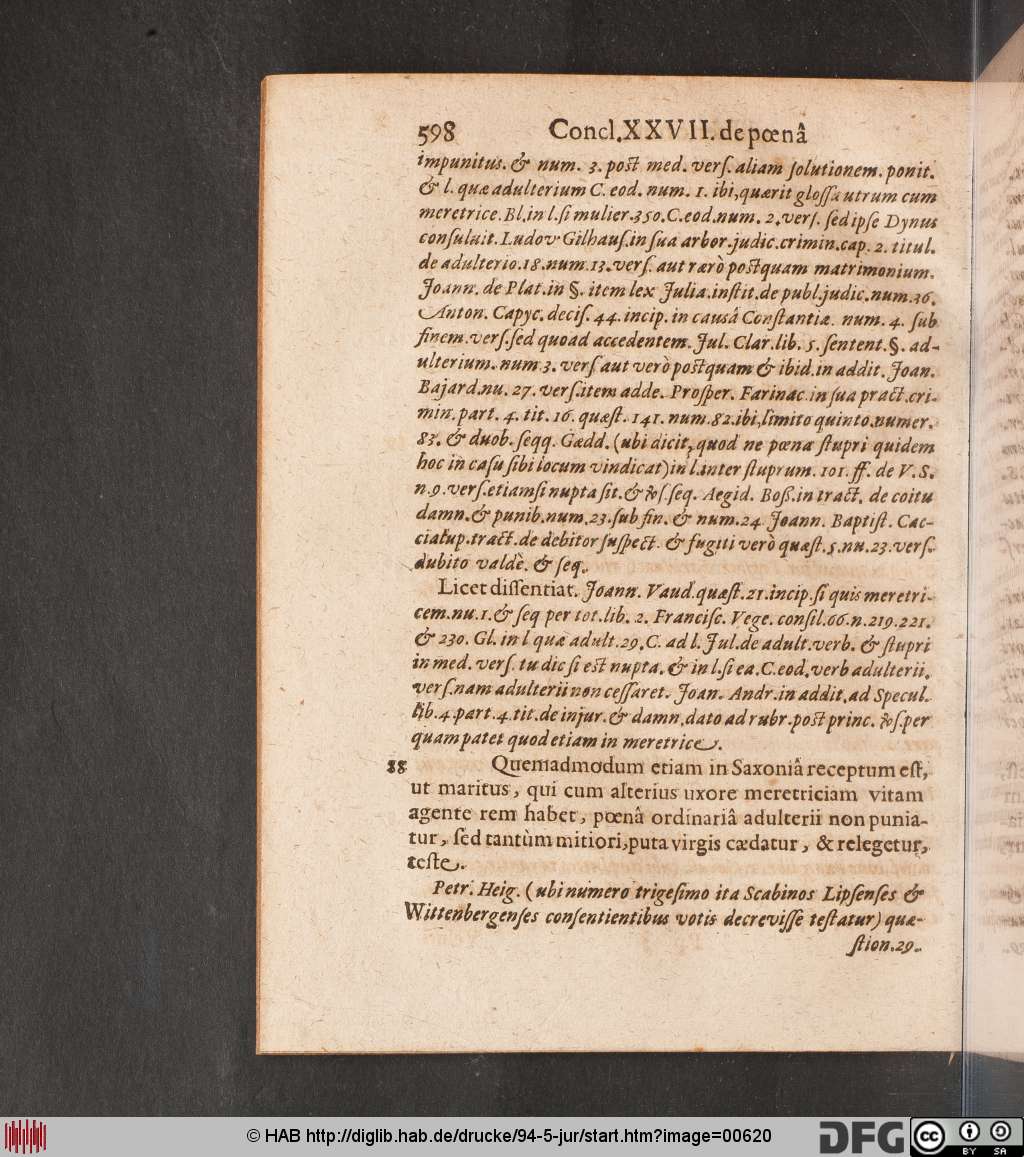 598 Concl. XXVII. de pœnâ
impunitus. & num. 3. poſt med. verſ. aliam ſolutionem. ponit.
& l. quæ adulterium C. eod. num. 1. ibi, quærit gloſſa utrum cum
meretrice. Bl. in l. ſi mulier. 350. C. eod. num. 2. verſ. ſed ipſe Dynus
conſuluit. Ludov. Gilhauſ. in ſua arbor. judic. crimin. cap. 2. titul.
de adulterio. 18. num. 13. verſ. aut rarò poſtquam matrimonium.
Joann. de Plat. in §. item lex Julia. inſtit. de publ. judic. num. 36.
Anton. Capyc. deciſ. 44. incip. in causâ Conſtantiæ. num. 4. ſub
finem. verſ. ſed quoad accedentem. Jul. Clar. lib. 5. ſentent. §. ad-
ulterium. num 3. verſ aut verò poſtquam & ibid. in addit. Joan.
Bajard. nu. 27. verſ. item adde. Proſper. Farinac. in ſua pract. cri-
min. part. 4. tit. 16. quæſt. 141. num. 82. ibi, limito quinto. numer.
83. & duob. ſeqq. Gædd. (ubi dicit, quod ne pœna ſtupri quidem
hoc in caſu ſibi locum vindicat) in l. inter ſtuprum. 101. ff. de V. S.
n. 9. verſ. etiamſi nupta ſit. & ſ. ſeq. Aegid. Boſſ. in tract. de coitu
damn. & punib. num. 23. ſub fin. & num. 24. Joann. Baptiſt. Cac-
cialup. tract. de debitor ſuſpect. & fugiti verò quæſt. 5. nu. 23. verſ.
dubito valdè. & ſeq.
Licet diſſentiat. Joann. Vaud. quæſt. 21. incip. ſi quis meretri-
cem. nu. 1. & ſeq per tot. lib. 2. Franciſc. Vege. conſil. 66. n. 219. 221.
& 230. Gl. in l quæ adult. 29. C. ad l. Jul. de adult. verb. & ſtupri
in med. verſ. tu dic ſi eſt nupta. & in l. ſi ea. C. eod. verb adulterii.
verſ. nam adulterii non ceſſaret. Joan. Andr. in addit. ad Specul.
lib. 4. part. 4. tit. de injur. & damn. dato ad rubr. poſt princ. ſ. per
quam patet quod etiam in meretrice.
88 Quemadmodum etiam in Saxoniâ receptum eſt,
ut maritus, qui cum alterius uxore meretriciam vitam
agente rem habet, pœnâ ordinariâ adulterii non punia-
tur, ſed tantùm mitiori, puta virgis cædatur, & relegetur,
teſte.
Petr. Heig. (ubi numero trigeſimo ita Scabinos Lipſenſes &
Wittenbergenſes conſentientibus votis decreviſſe teſtatur) quæ-
ſtion. 29.
© HAB http://diglib.hab.de/drucke/94-5-jur/start.htm?image=00620
DFG
cc BY SA